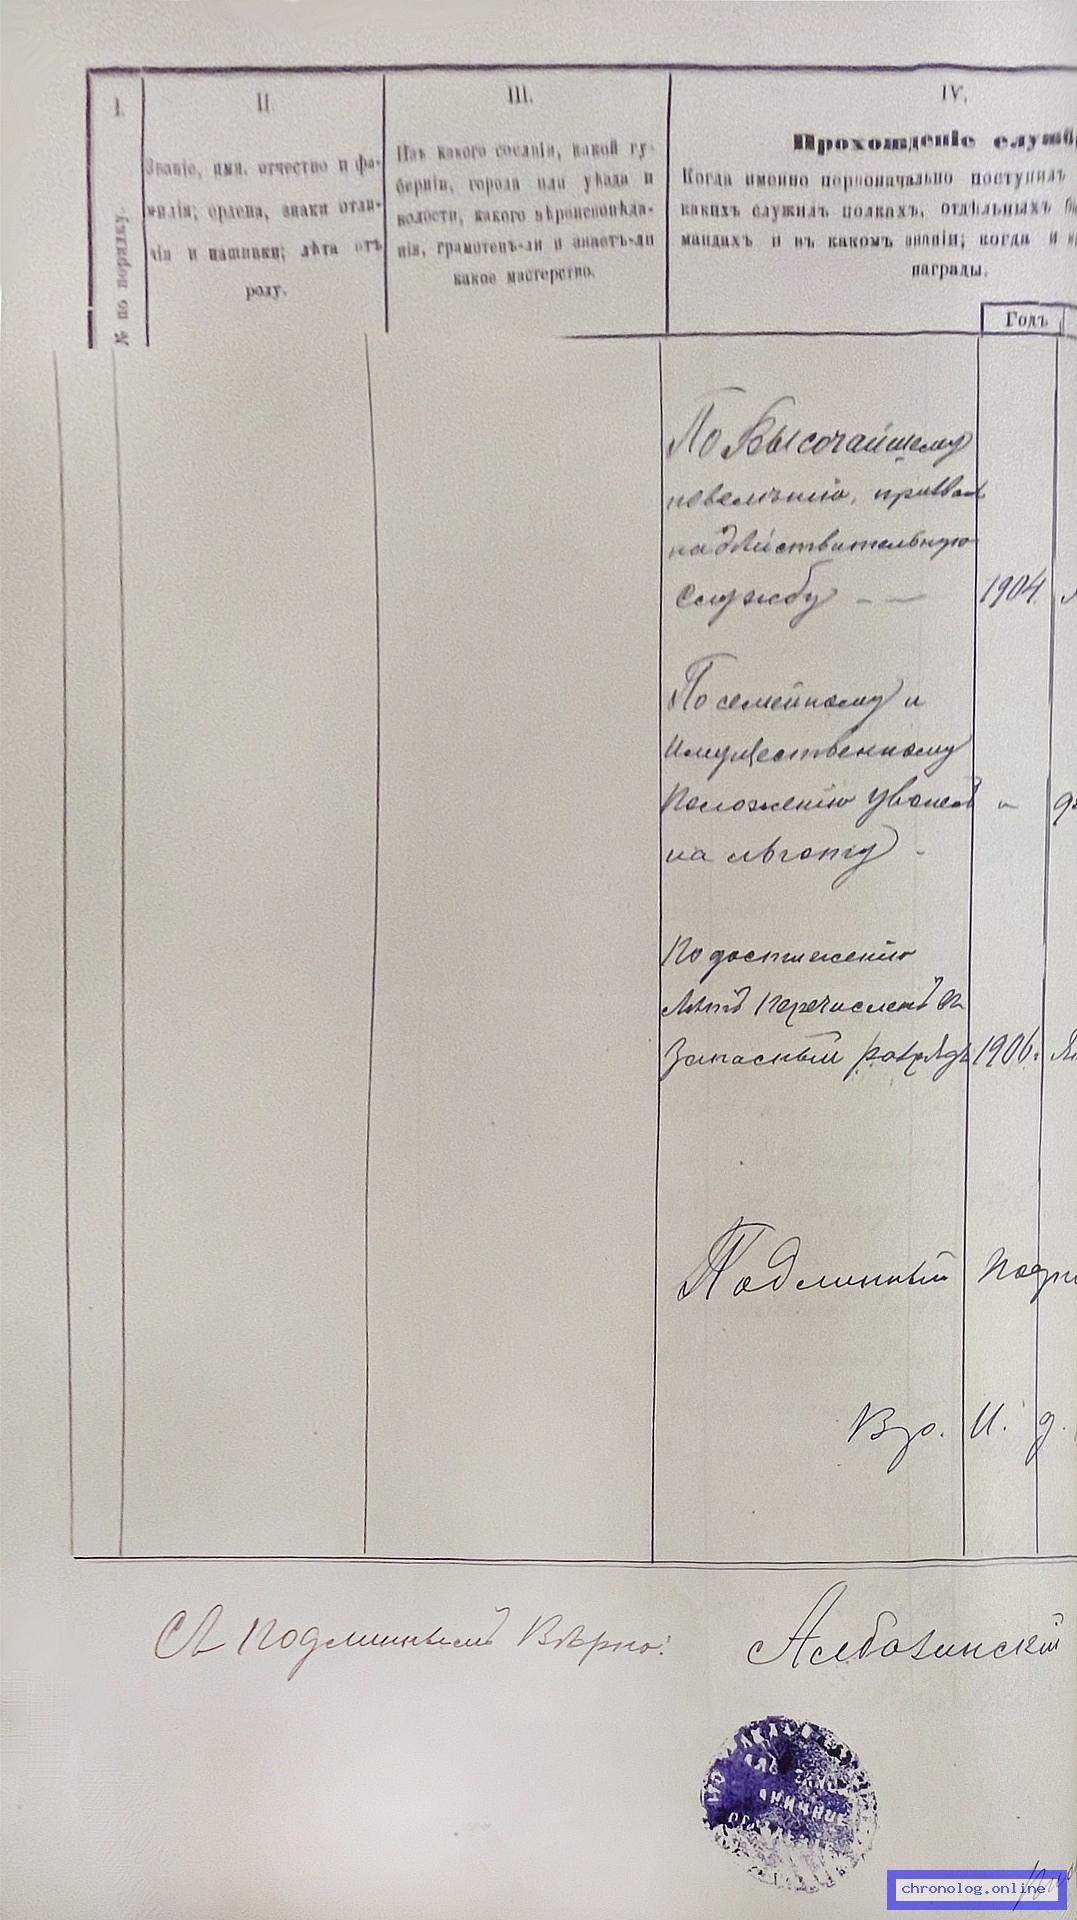 I.
II
III.
IV.
№ по порядку.
Званіе, имя, отчество и фа-
милія; ордена, знаки отли-
чія и нашивки; лѣта отъ
роду.
Изъ какого сословія, какой гу-
берніи, города или уѣзда и
волости, какого вѣроисповѣда-
нія, грамотенъ-ли и знаетъ-ли
какое мастерство.
Прохожденіе служб
Когда именно первоначально поступилъ
какихъ служилъ полкахъ, отдѣльныхъ
мандахъ и въ какомъ званіи; когда и
награды.
Годъ
По Высочайшему
повелѣнію, призван
на дѣйствительную
службу — — 1904.
По семейному и
имущественному
положенію уволенъ
на льготу
По достиженію
лѣтъ перечисленъ въ
запасный разрядъ 1906.
Подлинный подп
Вр. И. д.
Съ подлиннымъ вѣрно:
Албазинскій
chronolog.online